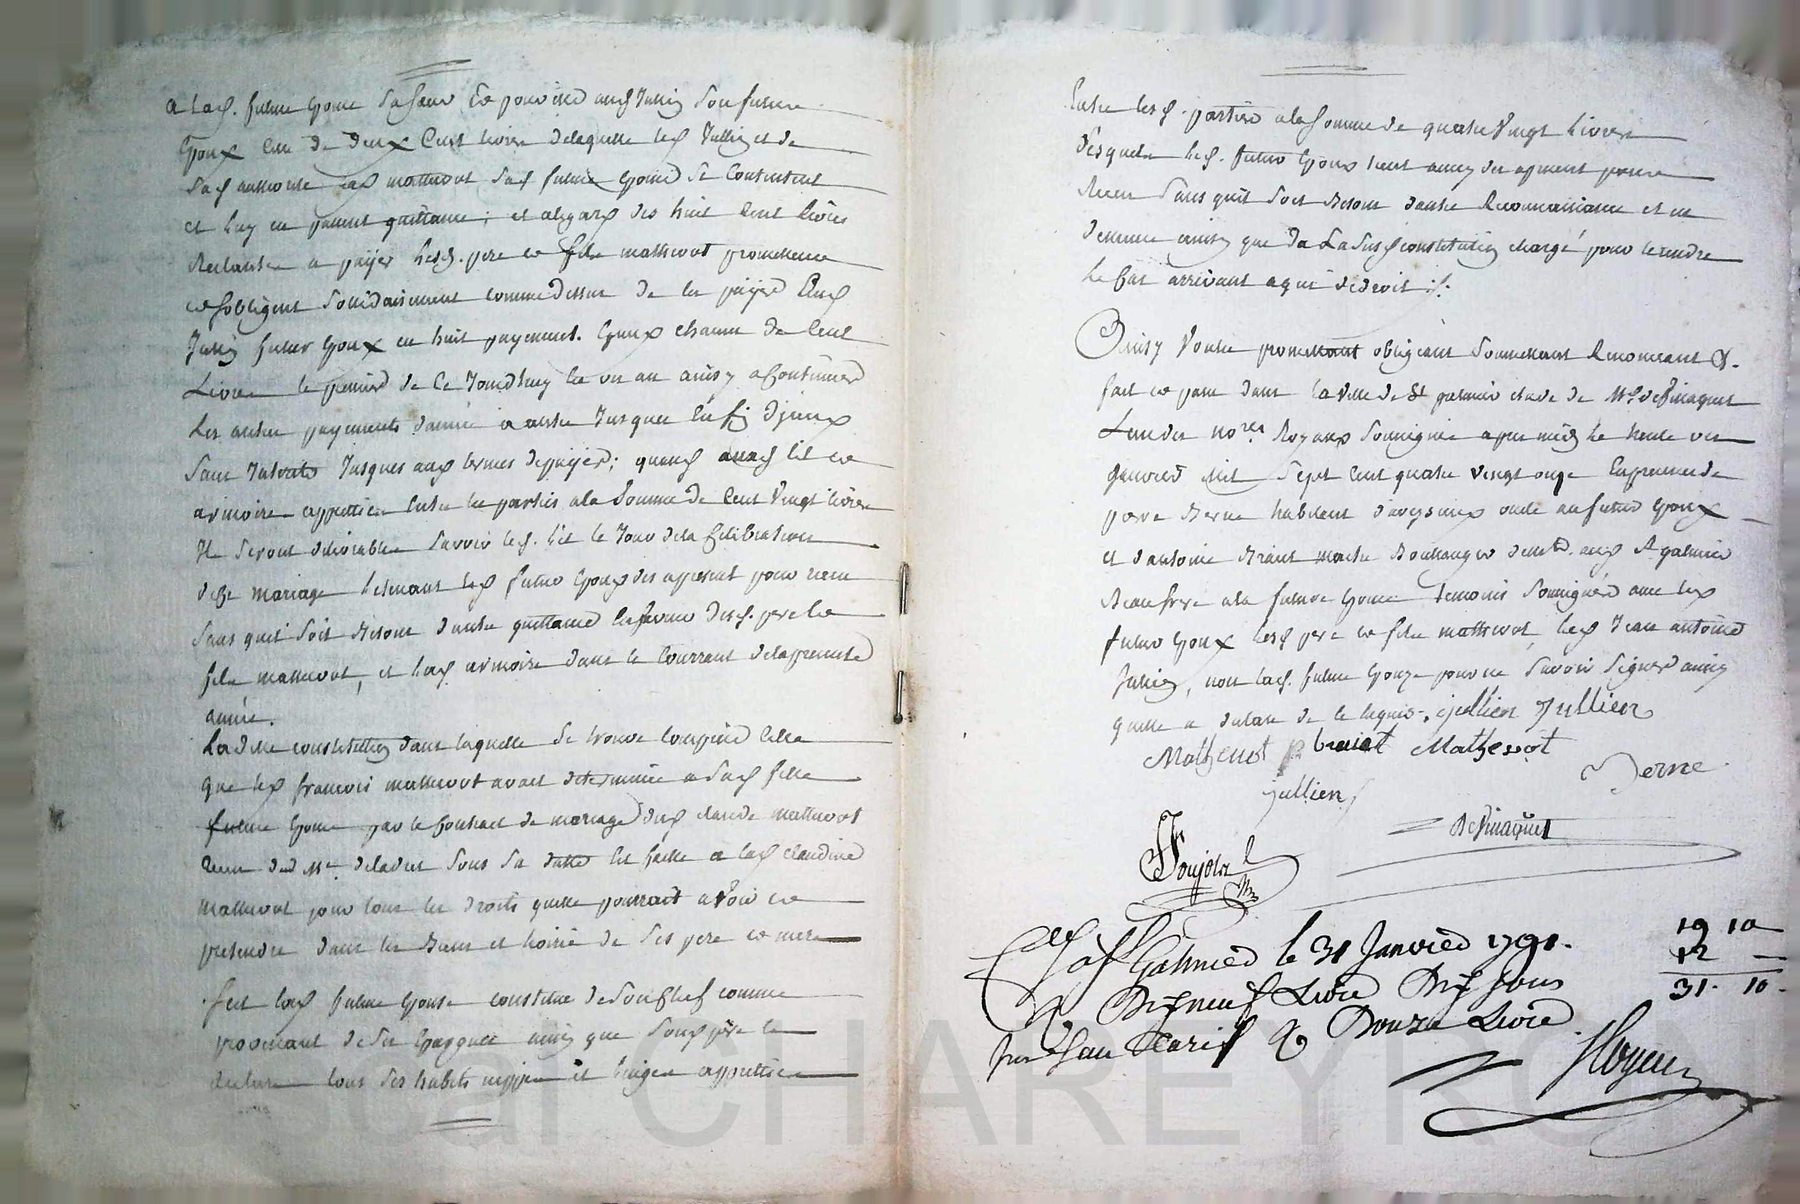 a lad. future Epouse sa sœur Ee pouvoir aud Jullien son futur
Epoux Celle de deux Cent livres delaquelle led Jullien et de
sad authorité led mathevot sad future Epouse se Contentent
et luy en passent quittance; et alegard des huit Cent livres
Restantes a payer lesd. pere et fils mathevot promettent
et sobligent solidairement comme dessus de les payer aud
Jullien futur Epoux en huit payements Egaux chacun de Cent
Livres le premier de Ce Jourdhuy en un an ainsy a Continuer
Les autres payements d'année a autre Jusques a la fin d'jceux
sans Interets Jusques aux termes de payer; quand aud lit et
armoire appretiés Entre les parties a la somme de Cent Vingt livres
Ils seront delivrables savoir led. lit le Jour de la Celebration
de Ce mariage lesquels futurs Epoux des apresent pour recus
sans quil soit Besoin d'autre quittance En faveur desd. pere et
fils mathevot, et lad armoire dans le Courrant de la presente
année.
La dite constitution dans laquelle se trouve Comprise Celle
que led françois mathevot avait determinée a sad fille
future Epouse par le Contract de mariage dud claude mathevot
recu de Me deladret sous sa datte Est faitte a lad claudine
mathevot pour tous les droits quelle pourrait avoir et
pretendre dans les Biens et hoirie de ses pere et mere
fait lad future Epouse constitue de son chef comme
provenant de ses Epargnes ainsy que sond pere le
declare tous ses habits nippes et linges appretiés
Entre lesd. parties a la somme de quatre Vingt Livres
desquels led. futur Epoux des apresent pour
Recus sans quil soit Besoin d'autre Reconnaissance et en
demeure ainsy que de La susd constitution chargé pour le rendre
le Cas arrivant a qui de droit ./.
Ainsy Voulu promettant obligeant soumettant Renonceant &.
fait et passé dans la ville de St galmier etude de Me. deVinaquet
L'un des nores Royaux soussignés apres midy le trente un
Janvier Mil sept Cent quatre vingt onze En presence de
pierre Berne habitant d'aveyzieux oncle au futur Epoux
et d'antoine Briat maitre Boullanger de lad. aud St galmier
Beau frere a la future Epouse temoins soussignés avec led
futur Epoux lesd pere et fils mathevot, led Jean antoine
Jullien, non lad. future Epouse pour ne savoir signer ainsy
quelle a declaré de Ce Requis. jullien Jullien
Mathevot Briat Mathevot
Berne
jullien
DeVinaquet
Poujolz
Cllé a St Galmier le 31 Janvier 1791.
R Dix neuf Livre Dix sous
19 10
12 —
31. 10.